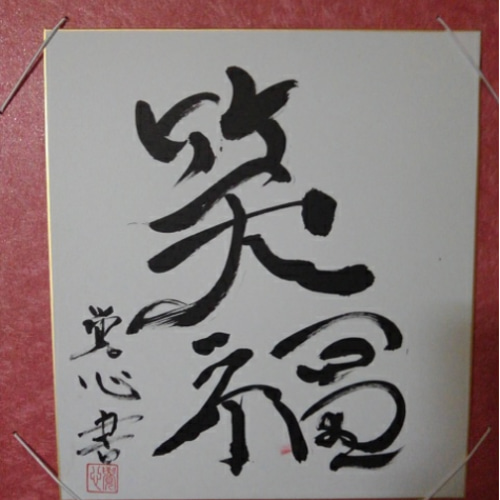 笑福
心書